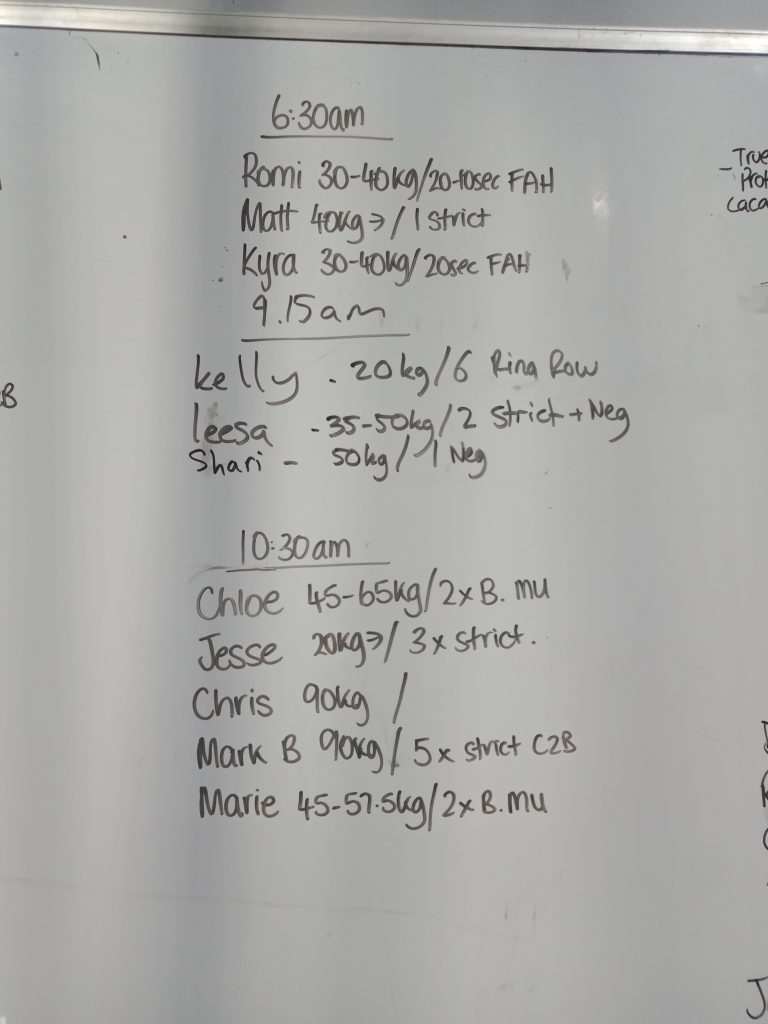 6:30am
Romi 30-40kg/20-10sec FAH
Matt 40kg→/1 strict
Kyra 30-40kg/20sec FAH
9.15am
kelly - 20kg/6 Ring Row
leesa - 35-50kg/2 Strict + Neg
Shari - 50kg/1 Neg
10:30am
Chloe 45-65kg/2x B. mu
Jesse 20kg→/ 3x strict.
Chris 90kg /
Mark B 90kg/ 5x strict C2B
Marie 45-57.5kg/2x B.mu
- True
Prot
Caca
B
J